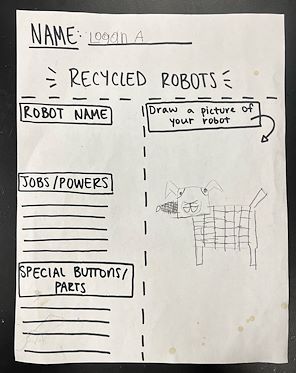 NAME: Logan A
RECYCLED ROBOTS
ROBOT NAME
Draw a picture of
your robot
JOBS/POWERS
SPECIAL BUTTONS/
PARTS